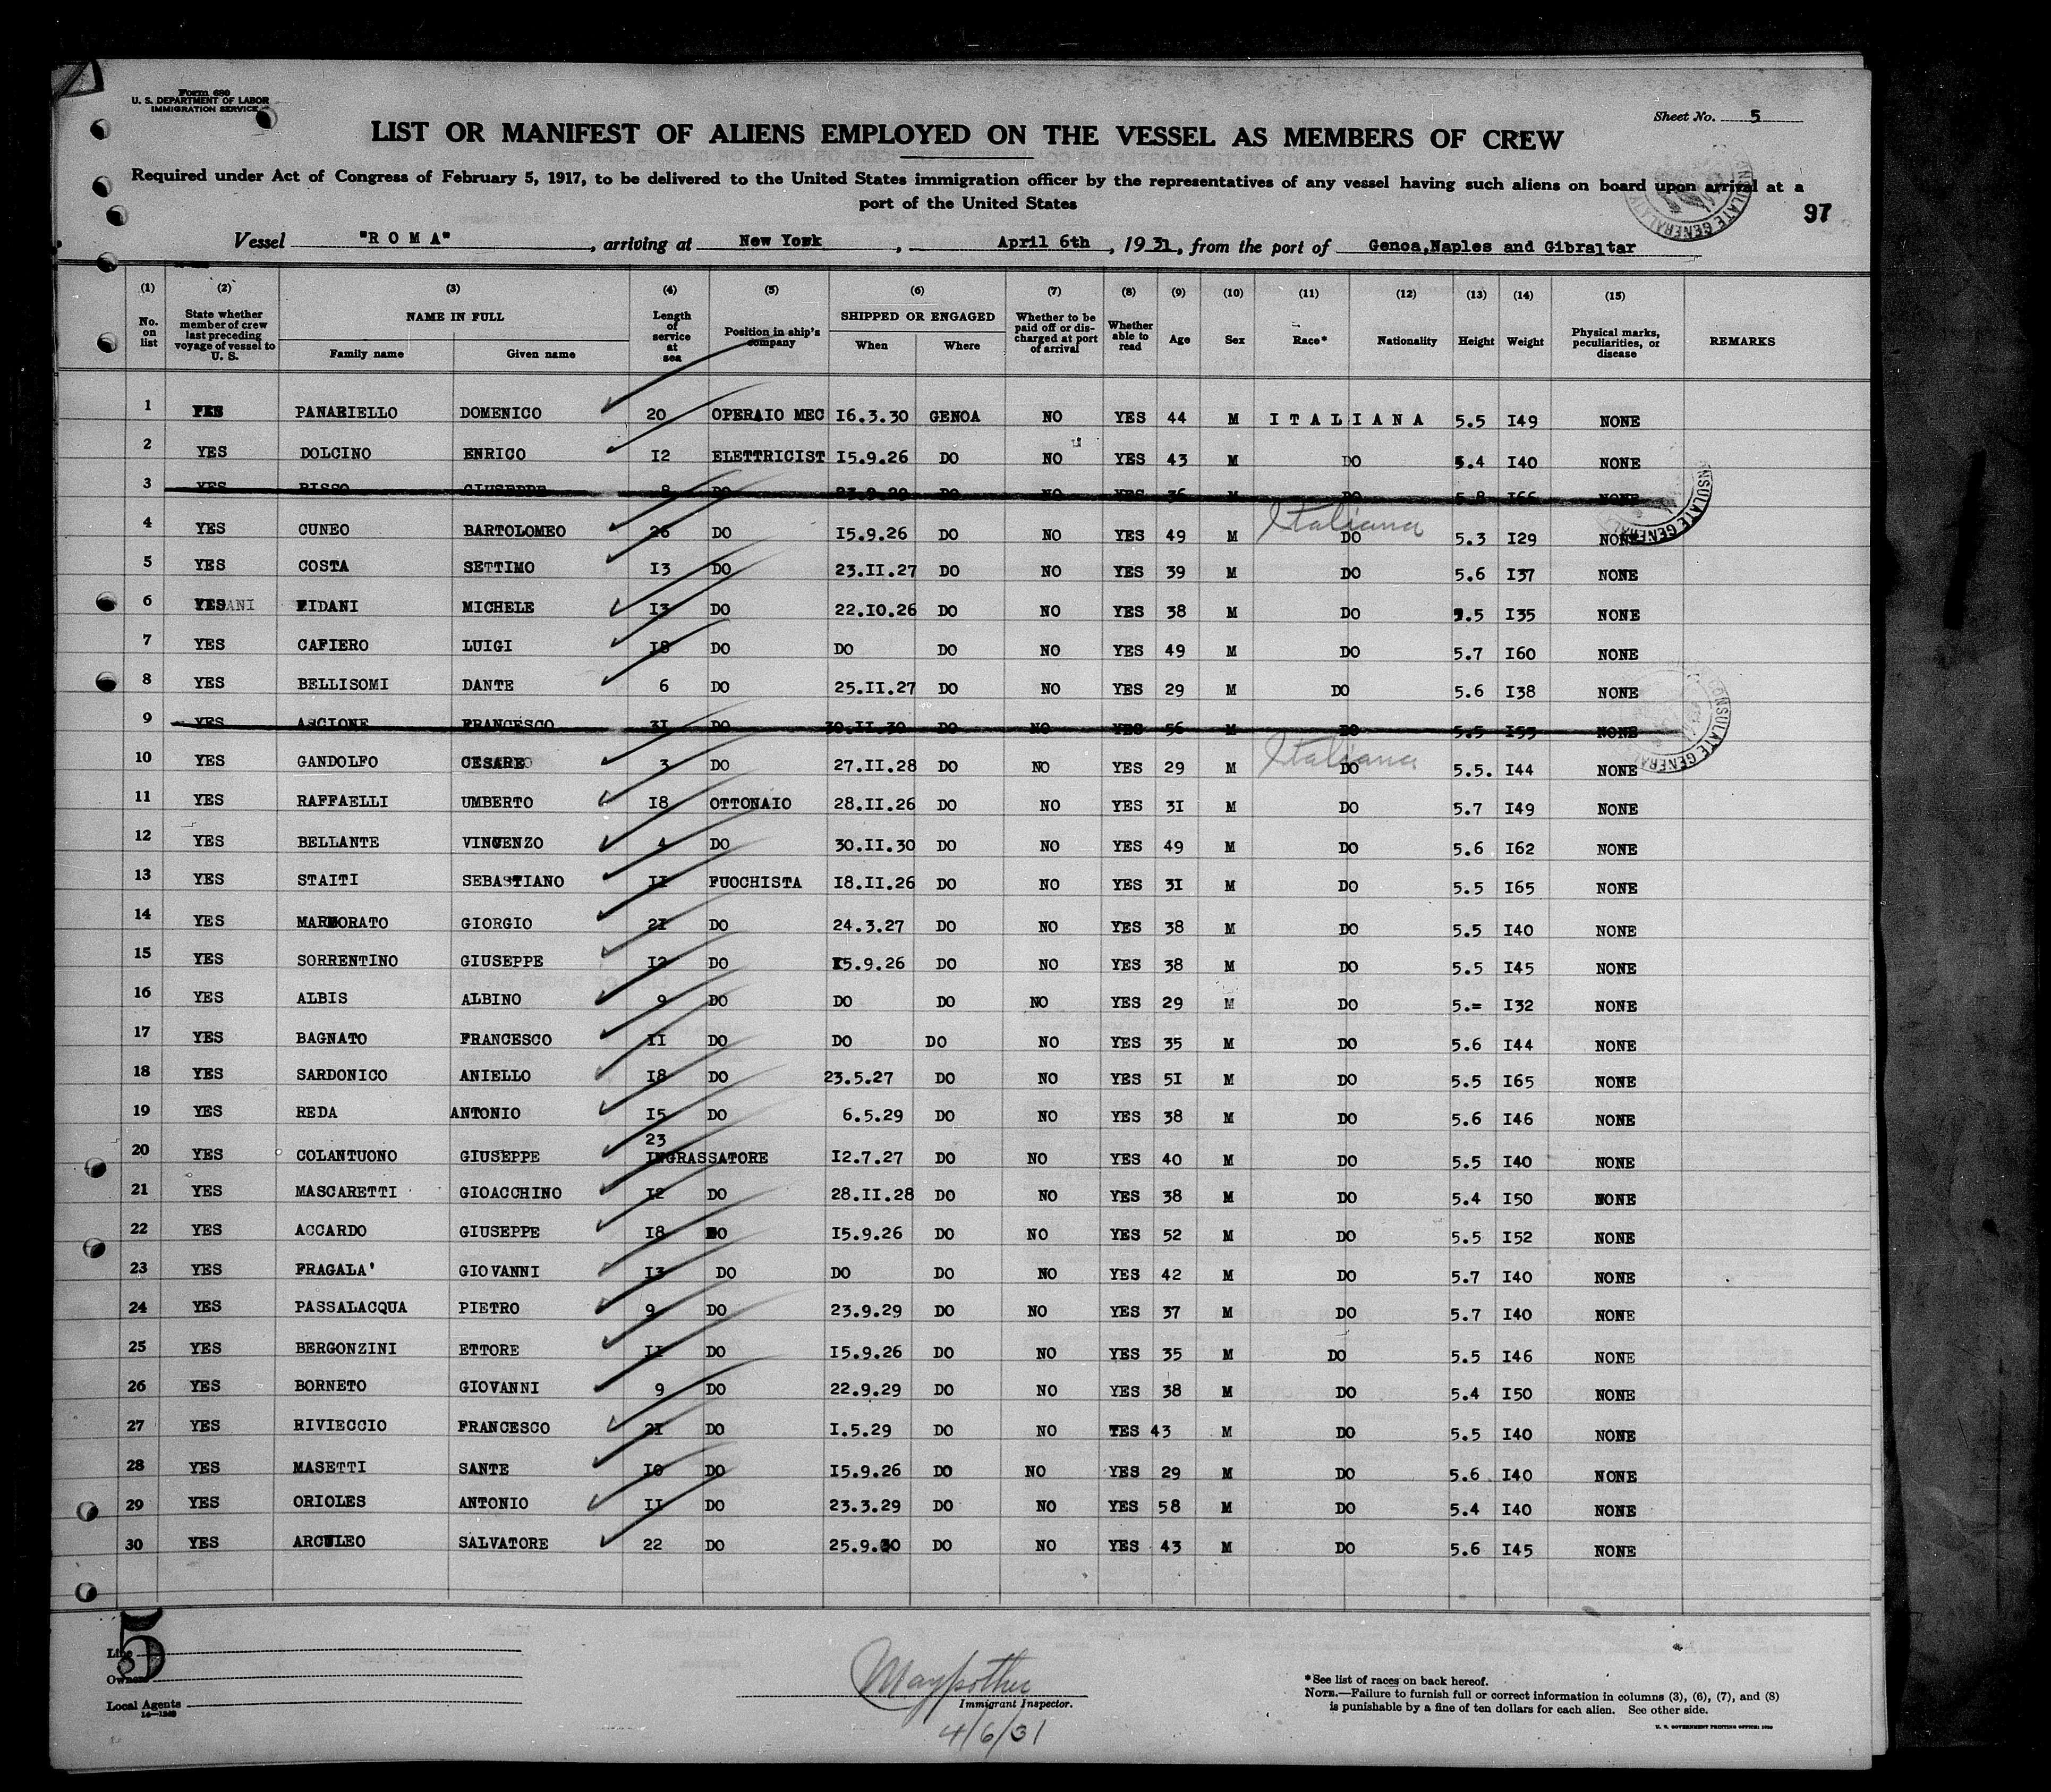 Form 680
U. S. DEPARTMENT OF LABOR
IMMIGRATION SERVICE
Sheet No. 5
LIST OR MANIFEST OF ALIENS EMPLOYED ON THE VESSEL AS MEMBERS OF CREW
Required under Act of Congress of February 5, 1917, to be delivered to the United States immigration officer by the representatives of any vessel having such aliens on board upon arrival at a
port of the United States
97
Vessel "ROMA", arriving at New York, April 6th, 1931, from the port of Genoa,Naples and Gibraltar
(1) No. on list (2) State whether member of crew last preceding voyage of vessel to U. S. (3) NAME IN FULL Family name Given name (4) Length of service at sea (5) Position in ship's company (6) SHIPPED OR ENGAGED When Where (7) Whether to be paid off or discharged at port of arrival (8) Whether able to read (9) Age (10) Sex (11) Race* (12) Nationality (13) Height (14) Weight (15) Physical marks, peculiarities, or disease REMARKS
1 YES PANARIELLO DOMENICO 20 OPERAIO MEC I6.3.30 GENOA NO YES 44 M ITALIANA 5.5 I49 NONE
2 YES DOLCINO ENRICO I2 ELETTRICIST I5.9.26 DO NO YES 43 M DO 5.4 I40 NONE
3 YES RISSO GIUSEPPE 8 DO 23.9.29 DO NO YES 36 M DO 5.8 I66 NONE
4 YES CUNEO BARTOLOMEO 26 DO I5.9.26 DO NO YES 49 M Italiana DO 5.3 I29 NONE
5 YES COSTA SETTIMO I3 DO 23.II.27 DO NO YES 39 M DO 5.6 I37 NONE
6 YES FIDANI MICHELE I3 DO 22.I0.26 DO NO YES 38 M DO 5.5 I35 NONE
7 YES CAFIERO LUIGI I8 DO DO DO NO YES 49 M DO 5.7 I60 NONE
8 YES BELLISOMI DANTE 6 DO 25.II.27 DO NO YES 29 M DO 5.6 I38 NONE
9 YES ASCIONE FRANCESCO 3I DO 30.II.30 DO NO YES 56 M DO 5.5 I55 NONE
10 YES GANDOLFO CESARE 3 DO 27.II.28 DO NO YES 29 M Italiana DO 5.5. I44 NONE
11 YES RAFFAELLI UMBERTO I8 OTTONAIO 28.II.26 DO NO YES 3I M DO 5.7 I49 NONE
12 YES BELLANTE VINCENZO 4 DO 30.II.30 DO NO YES 49 M DO 5.6 I62 NONE
13 YES STAITI SEBASTIANO II FUOCHISTA I8.II.26 DO NO YES 3I M DO 5.5 I65 NONE
14 YES MARMORATO GIORGIO 2I DO 24.3.27 DO NO YES 38 M DO 5.5 I40 NONE
15 YES SORRENTINO GIUSEPPE I2 DO I5.9.26 DO NO YES 38 M DO 5.5 I45 NONE
16 YES ALBIS ALBINO 9 DO DO DO NO YES 29 M DO 5.= I32 NONE
17 YES BAGNATO FRANCESCO II DO DO DO NO YES 35 M DO 5.6 I44 NONE
18 YES SARDONICO ANIELLO I8 DO 23.5.27 DO NO YES 5I M DO 5.5 I65 NONE
19 YES REDA ANTONIO I5 DO 6.5.29 DO NO YES 38 M DO 5.6 I46 NONE
20 YES COLANTUONO GIUSEPPE 23 INGRASSATORE I2.7.27 DO NO YES 40 M DO 5.5 I40 NONE
21 YES MASCARETTI GIOACCHINO I2 DO 28.II.28 DO NO YES 38 M DO 5.4 I50 NONE
22 YES ACCARDO GIUSEPPE I8 DO I5.9.26 DO NO YES 52 M DO 5.5 I52 NONE
23 YES FRAGALA' GIOVANNI I3 DO DO DO NO YES 42 M DO 5.7 I40 NONE
24 YES PASSALACQUA PIETRO 9 DO 23.9.29 DO NO YES 37 M DO 5.7 I40 NONE
25 YES BERGONZINI ETTORE II DO I5.9.26 DO NO YES 35 M DO 5.5 I46 NONE
26 YES BORNETO GIOVANNI 9 DO 22.9.29 DO NO YES 38 M DO 5.4 I50 NONE
27 YES RIVIECCIO FRANCESCO 2I DO I.5.29 DO NO YES 43 M DO 5.5 I40 NONE
28 YES MASETTI SANTE I0 DO I5.9.26 DO NO YES 29 M DO 5.6 I40 NONE
29 YES ORIOLES ANTONIO II DO 23.3.29 DO NO YES 58 M DO 5.4 I40 NONE
30 YES ARCULEO SALVATORE 22 DO 25.9.30 DO NO YES 43 M DO 5.6 I45 NONE
5
Line
Owners
Local Agents
14—1240
Immigrant Inspector.
4/6/31
*See list of races on back hereof.
NOTE.—Failure to furnish full or correct information in columns (3), (6), (7), and (8)
is punishable by a fine of ten dollars for each alien. See other side.
U. S. GOVERNMENT PRINTING OFFICE: 1930